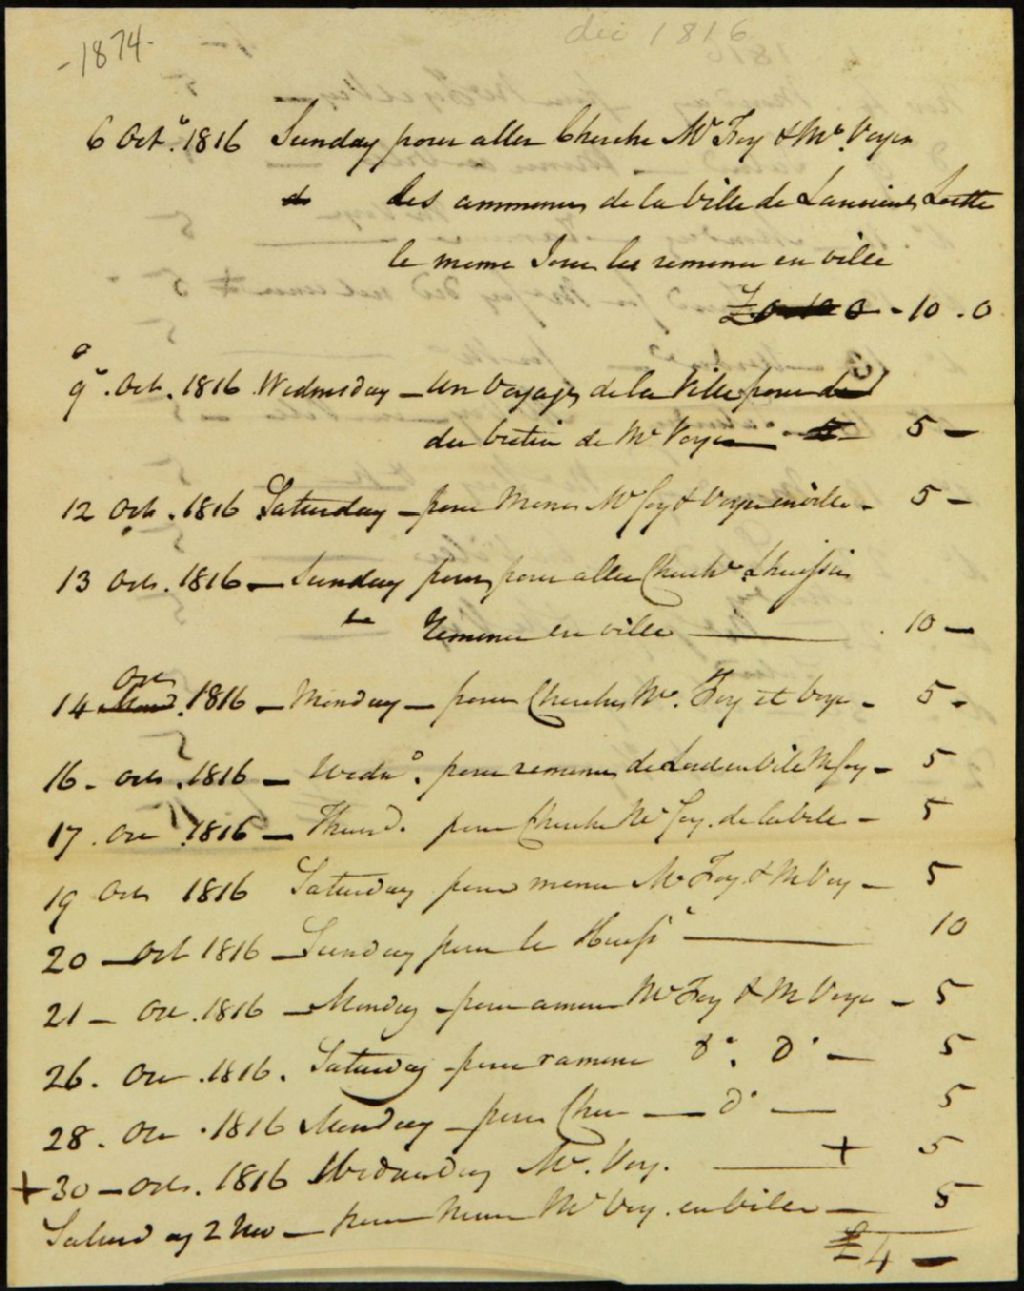 -1874-
dec 1816
6 Oct. 1816 Sunday pour aller Cherche Mr Foy & Mr. Voyer
do des ammener de la Ville de Lancienne Lorette
le meme Jour les remener en ville
£ 0 - 10 . 0
9 . Oct. 1816 Wednesday - un Voyage de la Ville pour
du butin de Mr Voyer 5 -
12 Octr . 1816 Saturday - pour Mener Mr Foy & Voyer en ville - 5 -
13 Octr. 1816 - Sunday pour pour aller Cherche Lhuissier
Remener en ville 10 -
14 Oct 1816 - Monday - pour Cherches Mr. Foy et Voyer - 5 -
16 - Octr . 1816 - Wedn. pour remener de Lord en Vile M Foy - 5
17 . Oct 1816 - Thursd. pour Cherche Mr Foy . de la Vile - 5
19 Octr 1816 Saturday pour mener Mr Foy & M Voy - 5
20 - Oct 1816 - Sunday pour le Huiss 10
21 - Oct . 1816 - Monday - pour amener Mr Foy & M Voyer - 5
26 . Oct . 1816 . Saturday - pour ramener do. do - 5
28 . Oct . 1816 Monday - pour Cher - do - 5
+ 30 - Octr. 1816 Wednesday Mr. Voy. + 5
Saturday 2 Nov - pour Mener Mr Voy . en Ville - 5
£4 -